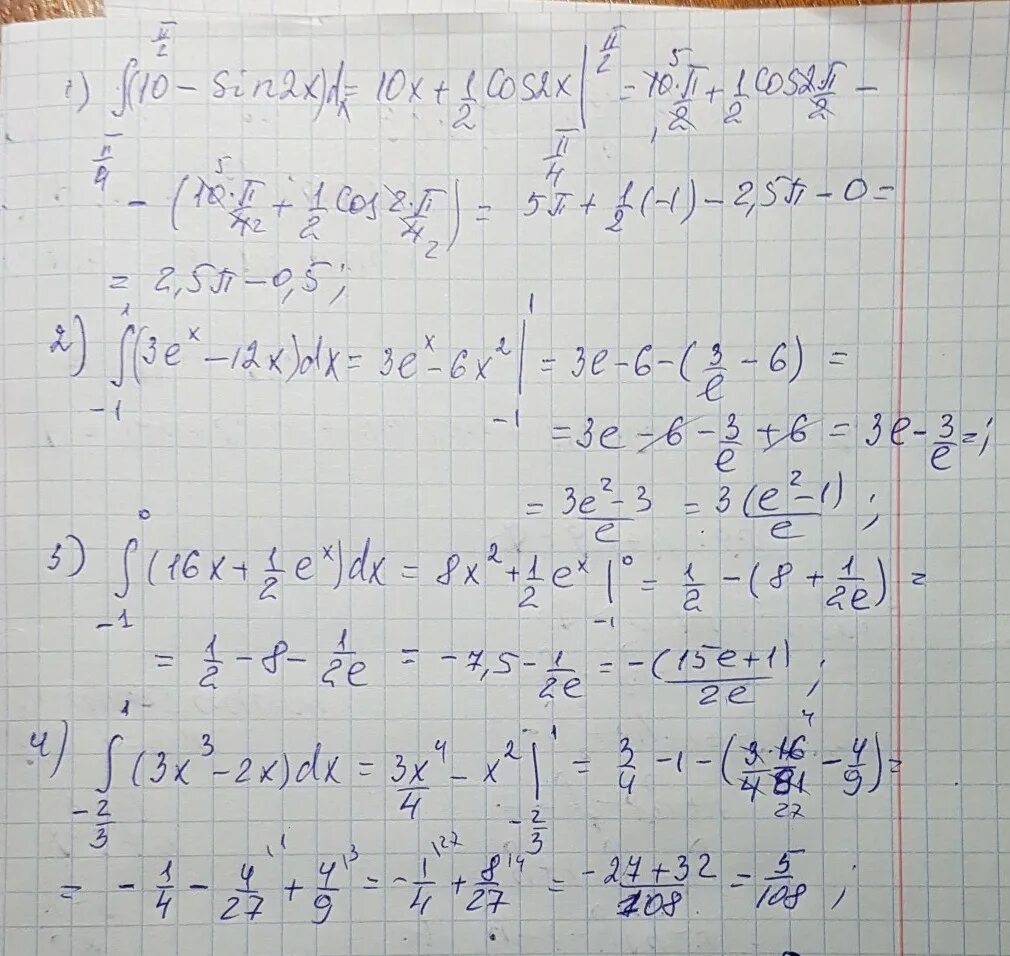 1) ∫_{π/4}^{π/2} (10 - sin2x)dx = 10x + 1/2 cos2x |_{π/4}^{π/2} = 10·π/2 + 1/2 cos 2π/2 -
- (10·π/4 + 1/2 cos 2·π/4) = 5π + 1/2 (-1) - 2,5π - 0 =
= 2,5π - 0,5;
2) ∫_{-1}^{1} (3e^x - 12x)dx = 3e^x - 6x^2 |_{-1}^{1} = 3e - 6 - (3/e - 6) =
= 3e - 6 - 3/e + 6 = 3e - 3/e =;
= (3e^2 - 3)/e = 3(e^2 - 1)/e ;
3) ∫_{-1}^{0} (16x + 1/2 e^x)dx = 8x^2 + 1/2 e^x |_{-1}^{0} = 1/2 - (8 + 1/2e) =
= 1/2 - 8 - 1/2e = -7,5 - 1/2e = -(15e+1)/2e ;
4) ∫_{-2/3}^{1} (3x^3 - 2x)dx = 3x^4/4 - x^2 |_{-2/3}^{1} = 3/4 - 1 - (3·16/4·81 - 4/9) =
= - 1/4 - 4/27 + 4/9 = - 1/4 + 8/27 = (-27 + 32)/108 = 5/108 ;